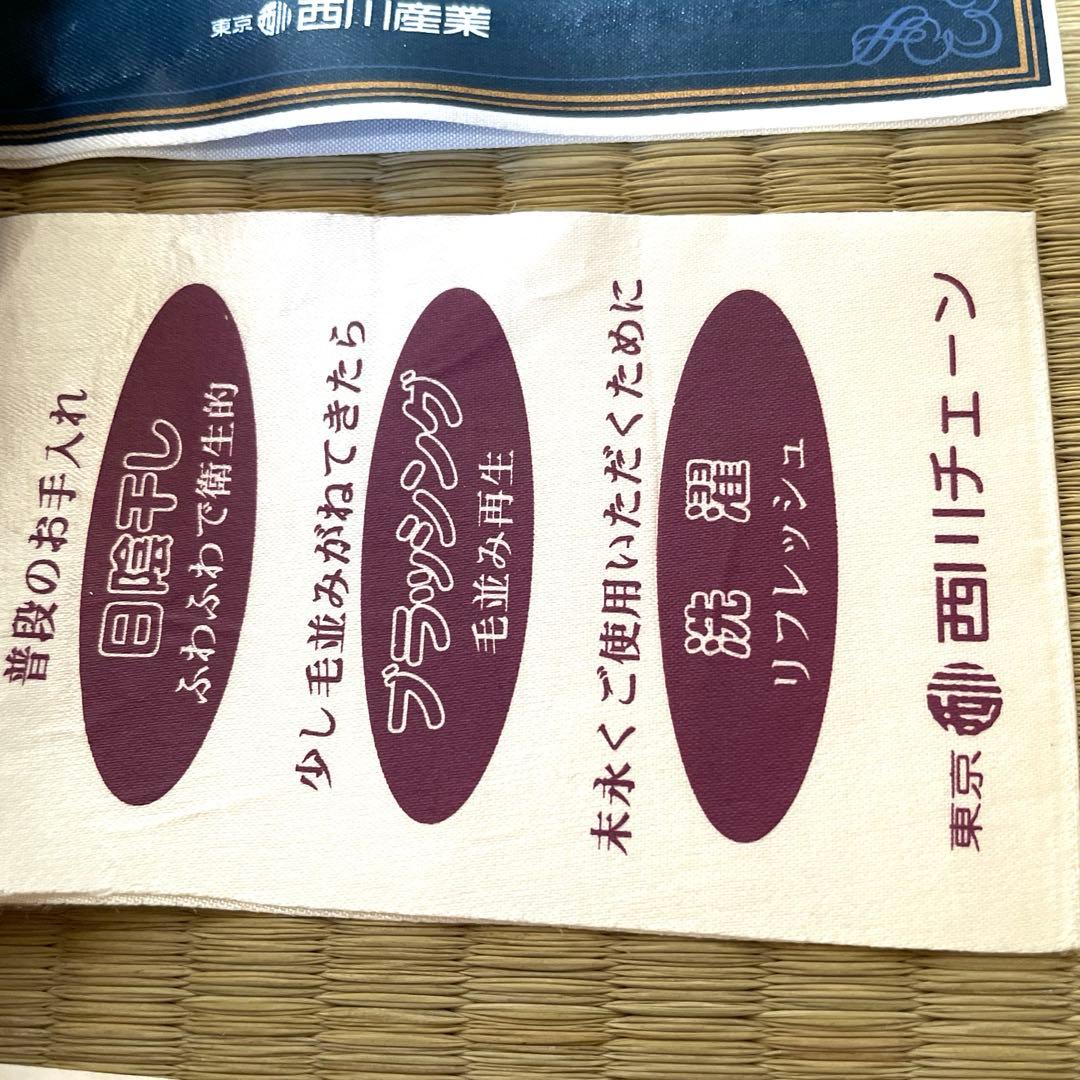 東京 西川産業
普段のお手入れ
日陰干し
ふわふわで衛生的
少し毛並みがねてきたら
ブラッシング
毛並み再生
末永くご使用いただくために
洗濯
リフレッシュ
東京 西川チェーン